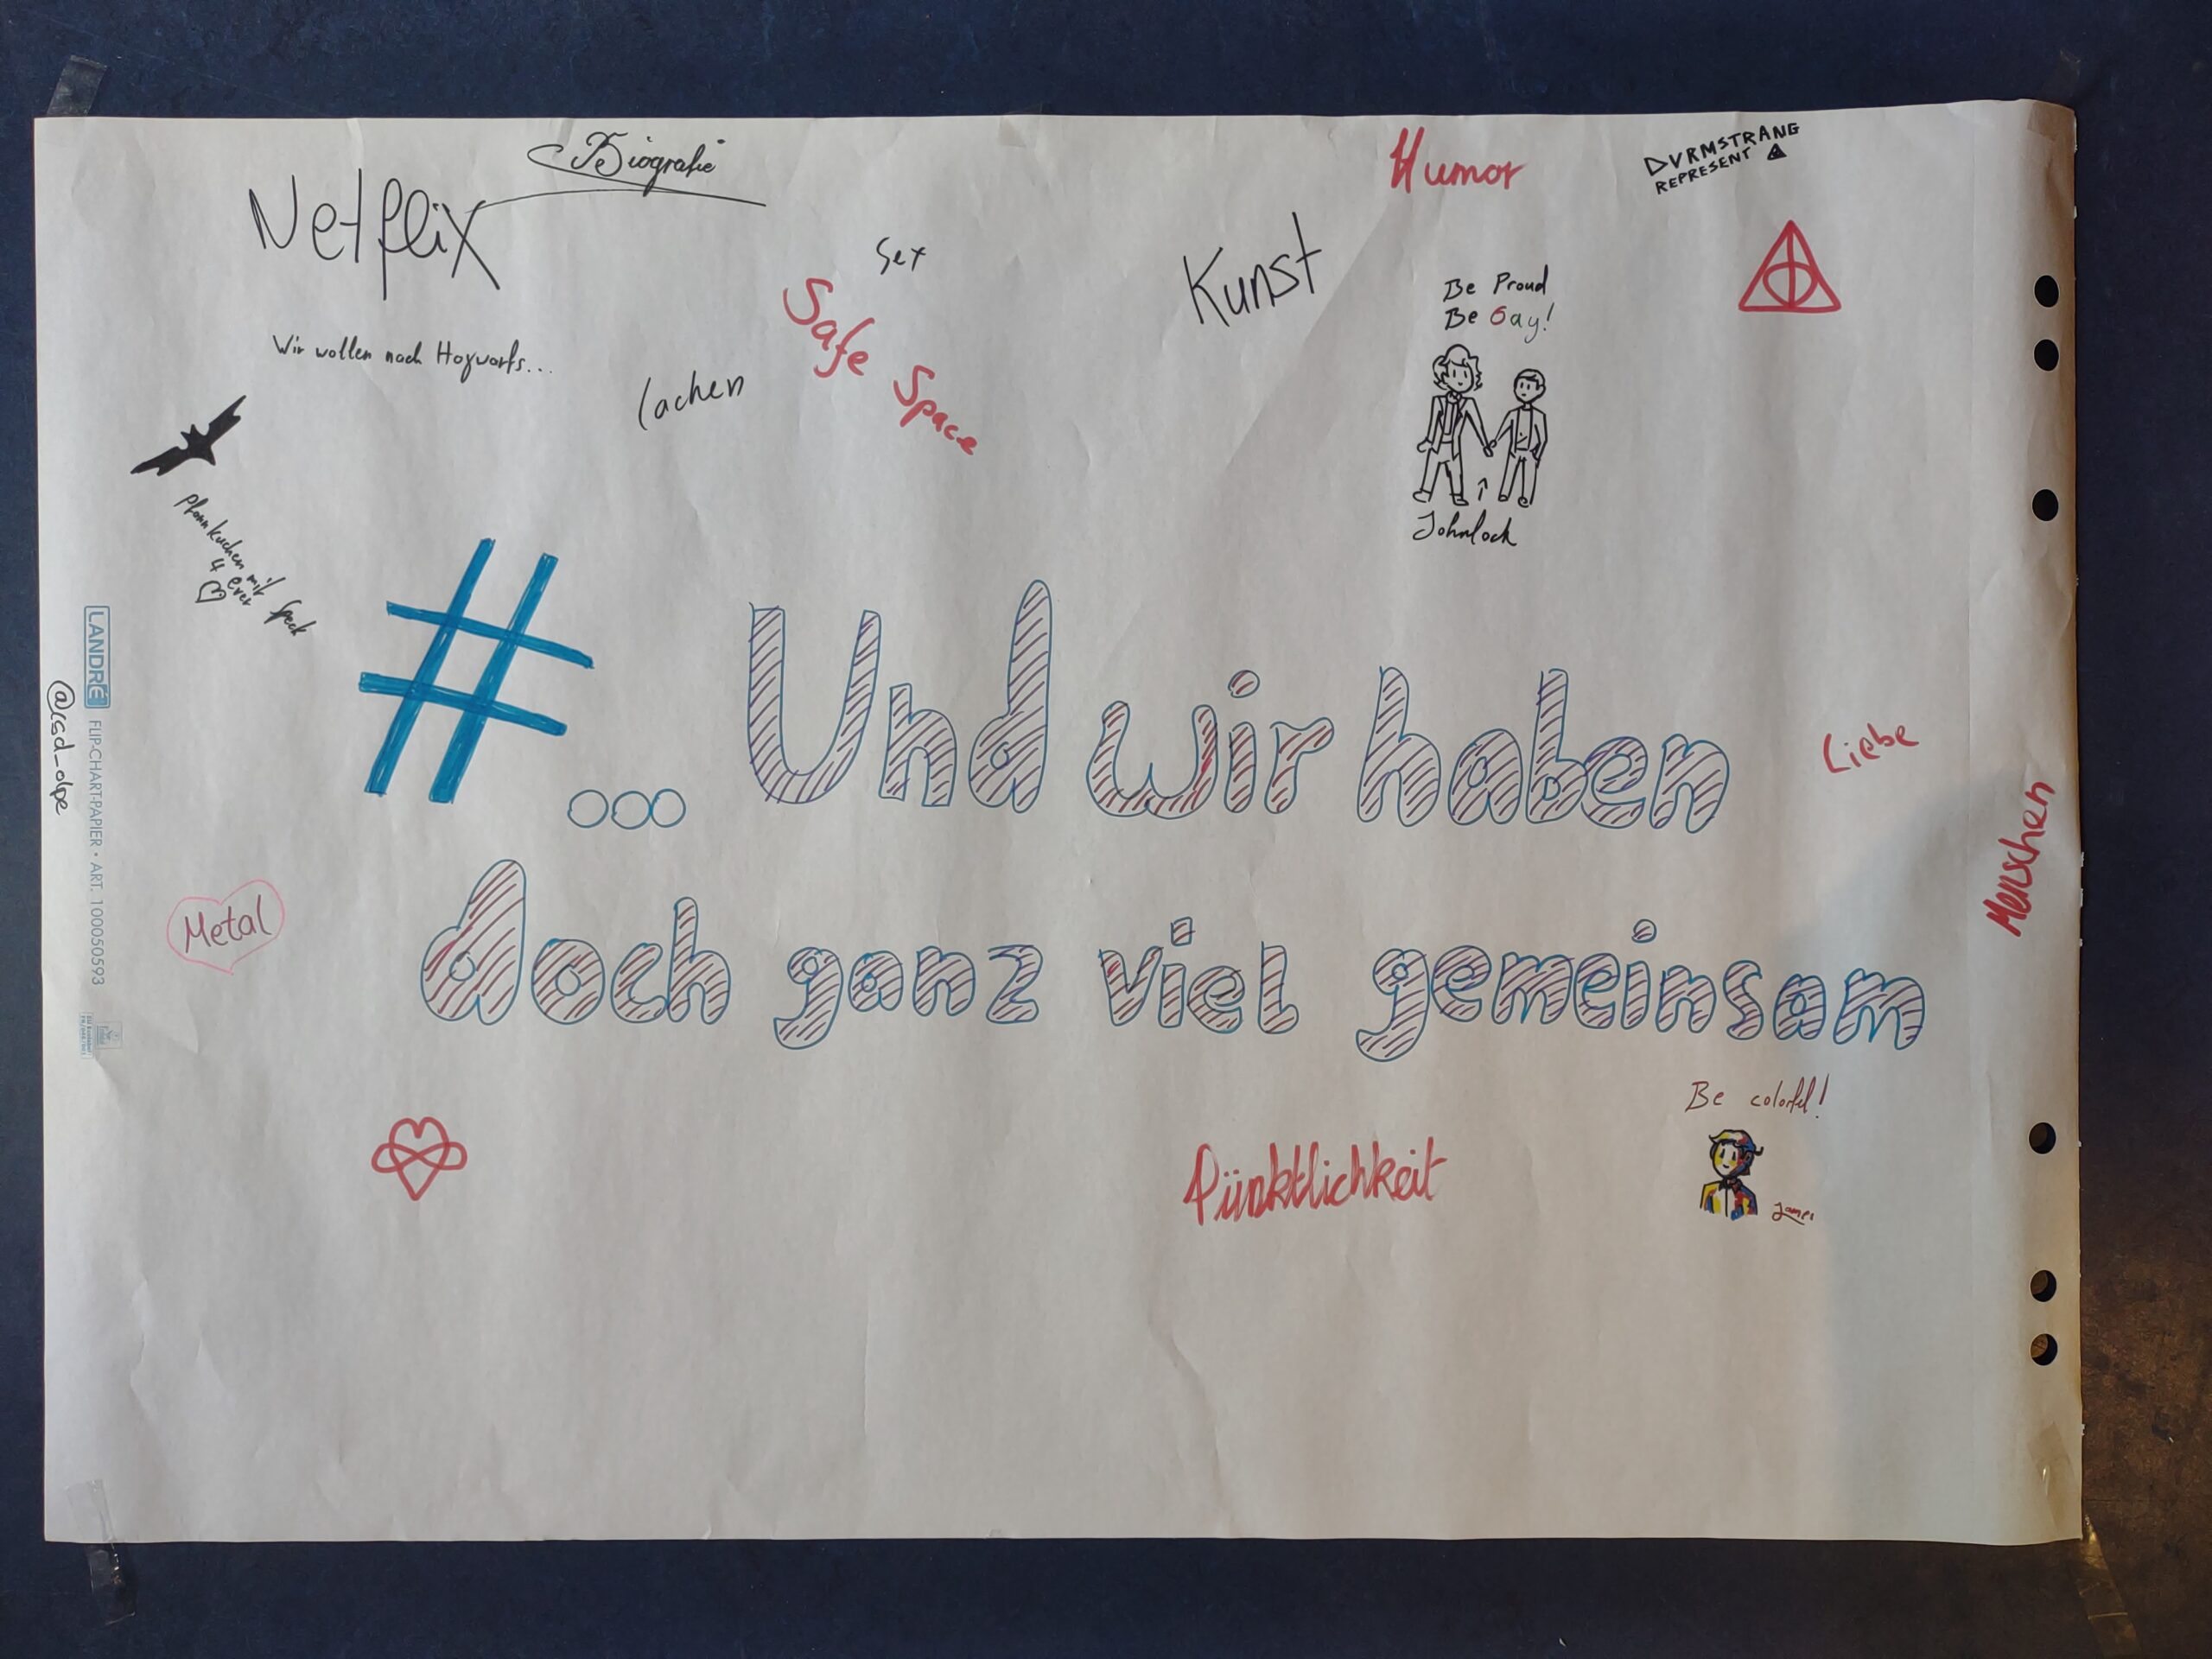 Biografie
Humor
DVRMSTRANG
REPRESENT
Netflix
Sex
Kunst
Safe Space
Be Proud
Be Gay!
Wir wollen nach Hogwarts...
lachen
Johnlock
Pfannkuchen mit Speck
4 ever
#... Und wir haben
doch ganz viel gemeinsam
Liebe
Menschen
LANDRÉ FLIP-CHART-PAPIER • ART. 100050593
@csd_olpe
Metal
Be colorful!
Pünktlichkeit
James